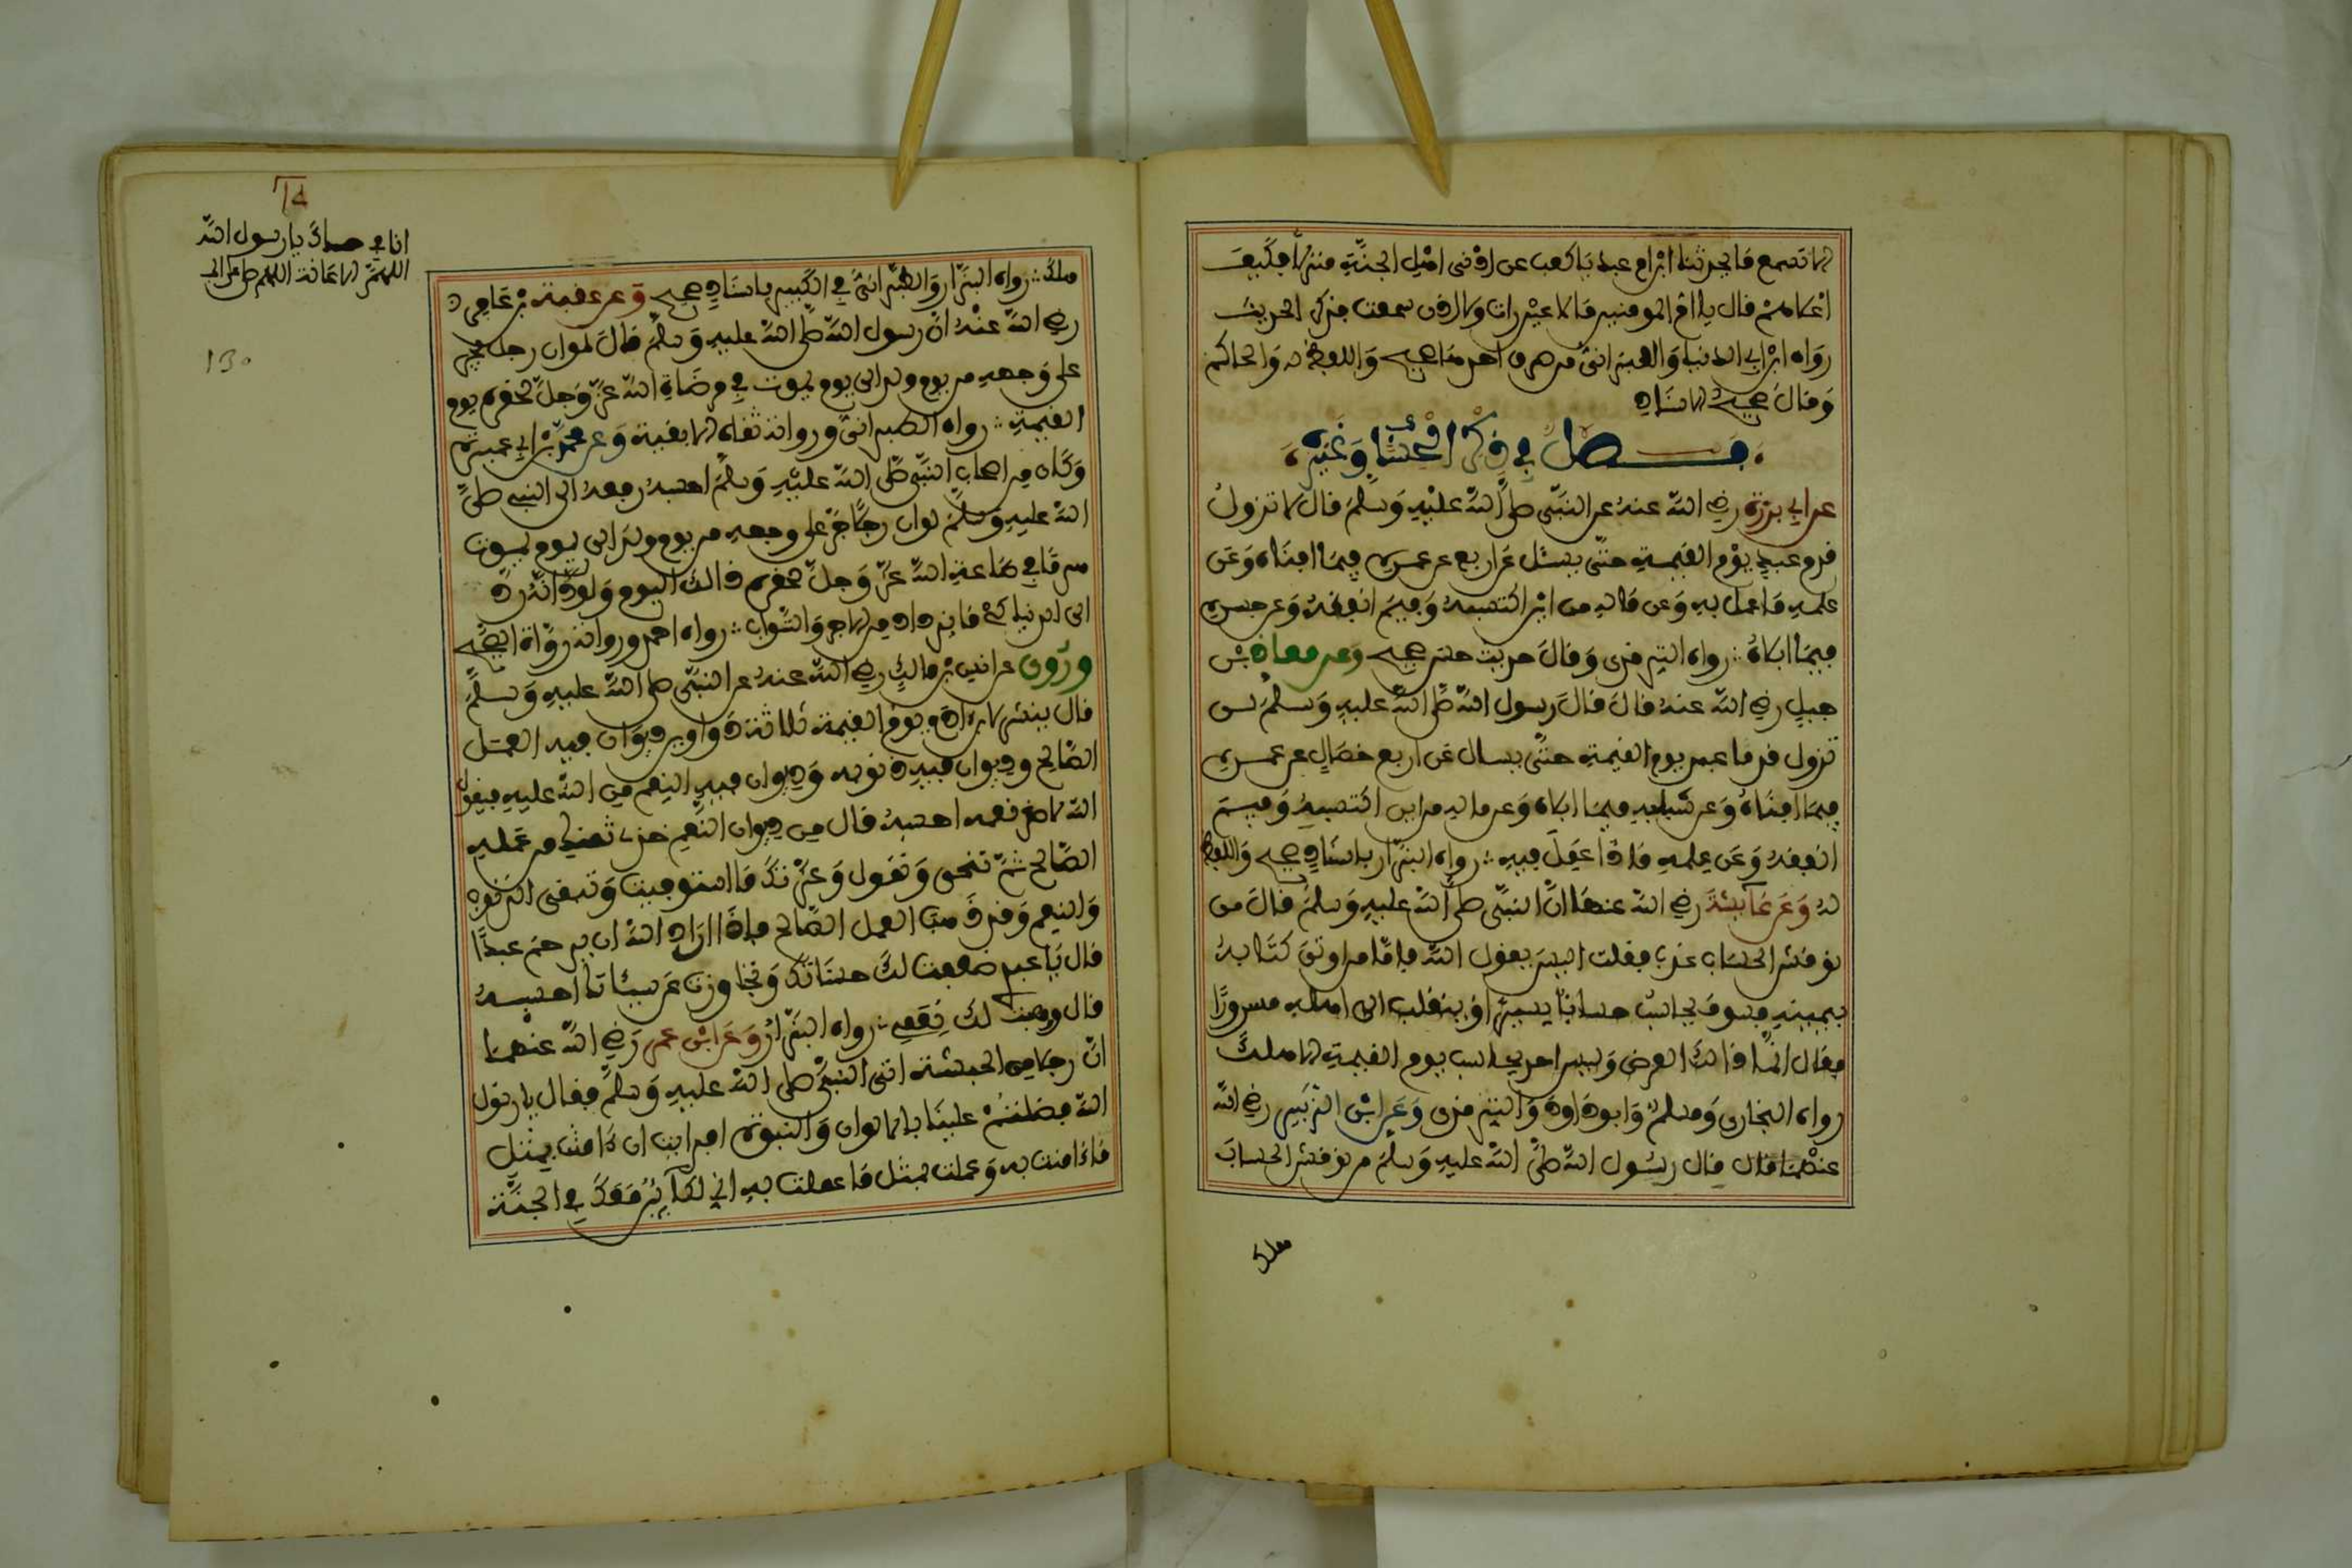 الا تسمع ما يحدثنا ابن ام عبد يا كعب عن ادنى اهل الجنة منزلا فكيف
اعلاهم قال يا امير المومنين ما لا عين رات ولا اذن سمعت فذكر الحديث
رواه ابن ابي الدنيا والطبراني من طرق احدها صحيح واللفظ له والحاكم
وقال صحيح الاسناد
فصل في ذكر الحساب وغيره
عن ابي برزة رضي الله عنه عن النبي صلى الله عليه وسلم قال لا تزول
قدم عبد يوم القيمة حتى يسئل عن اربع عن عمره فيما افناه وعن
علمه ما عمل به وعن ماله من اين اكتسبه وفيم انفقه وعن جسمه
فيما ابلاه رواه الترمذي وقال حديث حسن صحيح وعن معاذ بن
جبل رضي الله عنه قال قال رسول الله صلى الله عليه وسلم لن
تزول قدما عبد يوم القيمة حتى يسال عن اربع خصال عن عمره
فيما افناه وعن شبابه فيما ابلاه وعن ماله من اين اكتسبه وفيم
انفقه وعن علمه ماذا عمل فيه رواه البزار باسناد صحيح واللفظ
له وعن عايشة رضي الله عنها ان النبي صلى الله عليه وسلم قال من
نوقش الحساب عذب فقلت اليس يقول الله فاما من اوتي كتابه
بيمينه فسوف يحاسب حسابا يسيرا وينقلب الى اهله مسرورا
فقال انما ذالك العرض وليس احد يحاسب يوم القيمة الا هلك
رواه البخاري ومسلم وابو داود والترمذي وعن ابن الزبير رضي الله
عنهما قال قال رسول الله صلى الله عليه وسلم من نوقش الحساب
هلك
هلك رواه البزار والطبراني في الكبير باسناد صحيح وعن عقبة بن عامر
رضي الله عنه ان رسول الله صلى الله عليه وسلم قال لو ان رجل يجر
على وجهه من يوم ولد الى يوم يموت في مرضاة الله عز وجل لحقره يوم
القيمة رواه الطبراني ورواته ثقاة الا بقية وعن محمد بن ابي عميرة
وكان من اصحاب النبي صلى الله عليه وسلم احسبه رفعه الى النبي صلى
الله عليه وسلم لو ان رجلا خر على وجهه من يوم ولد الى يوم يموت
هرما في طاعة الله عز وجل لحقره ذالك اليوم ولود انه رد
الى الدنيا كي ما يزداد من الاجر والثواب رواه احمد ورواته رواة الصحيح
وروي عن انس بن مالك رضي الله عنه عن النبي صلى الله عليه وسلم
قال ينشر لابن ادم يوم القيمة ثلاثة دواوين ديوان فيه العمل
الصالح وديوان فيه ذنوبه وديوان فيه النعم من الله عليه فيقول
الله لاصغر نعمه احسبه قال من ديوان النعم خذي ثمنك من عمله
الصالح ثم تنحى وتقول وعزتك ما استوفيت وتبقى الذنوب
والنعم وقد ذهب العمل الصالح فاذا اراد الله ان يرحم عبدا
قال يا عبد ضاعفت لك حسناتك وتجاوزت عن سيئاتك احسبه
قال ووهبت لك نعمي رواه البزار وعن ابن عمر رضي الله عنهما
ان رجلا من الحبشة اتى النبي صلى الله عليه وسلم فقال يا رسول
الله فضلتم علينا بالالوان والنبوة افرايت ان ءامنت بمثل
ما ءامنت به وعملت بمثل ما عملت به اني لكاين معك في الجنة
انا في حماك يا رسول الله
130